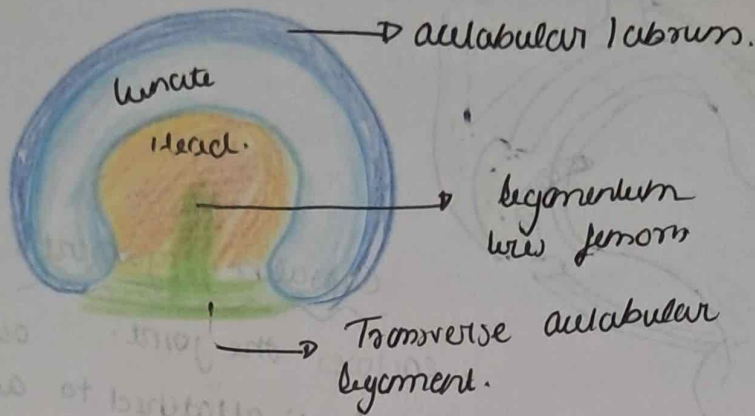 acetabular labrum.
lunate
Head.
ligamentum
teres femoris
Transverse acetabular
ligament.